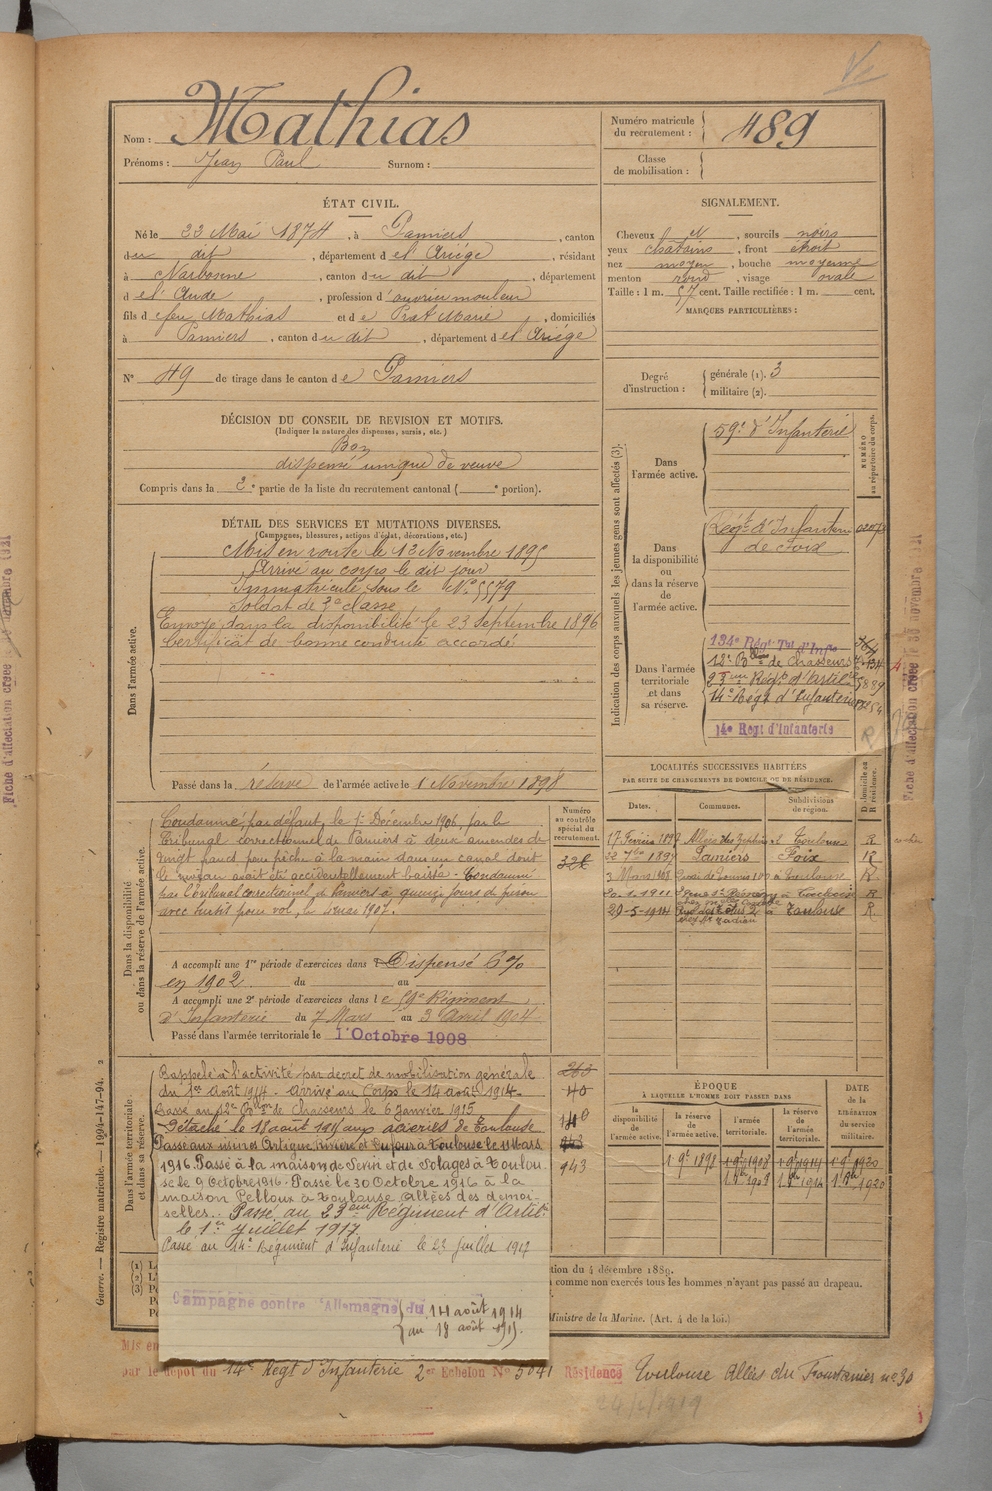 Nom : Mathias
Prénoms : Jean Paul Surnom :
Numéro matricule du recrutement : 489
Classe de mobilisation :
ÉTAT CIVIL.
Né le 23 Mai 1874, à Pamiers, canton
du dit, département de l'Ariége, résidant
à Narbonne, canton du dit, département
de l'Aude, profession d'ouvrier mouleur
fils de feu Mathias et de Prat Marie, domiciliés
à Pamiers, canton du dit, département de l'Ariége
N° 49 de tirage dans le canton de Pamiers
SIGNALEMENT.
Cheveux N, sourcils noirs
yeux chatains, front étroit
nez moyen, bouche moyenne
menton rond, visage ovale
Taille : 1 m. 57 cent. Taille rectifiée : 1 m. cent.
MARQUES PARTICULIÈRES :
Degré d'instruction : générale (1). 3
militaire (2).
DÉCISION DU CONSEIL DE REVISION ET MOTIFS.
(Indiquer la nature des dispenses, sursis, etc.)
Bon
dispensé unique de veuve
Compris dans la 2e partie de la liste du recrutement cantonal ( e portion).
DÉTAIL DES SERVICES ET MUTATIONS DIVERSES.
(Campagnes, blessures, actions d'éclat, décorations, etc.)
Dans l'armée active.
Mis en route le 13 Novembre 1895
Arrivé au corps le dit jour
Immatriculé sous le N° 5579
Soldat de 2e classe
Envoyé dans la disponibilité le 23 Septembre 1896
Certificat de bonne conduite accordé
Passé dans la réserve de l'armée active le 1 Novembre 1898
Indication des corps auxquels les jeunes gens sont affectés (3).
NUMÉRO au répertoire du corps.
Dans l'armée active.
59e d'Infanterie
Dans la disponibilité ou dans la réserve de l'armée active.
Régt d'Infanterie
de Foix
Dans l'armée territoriale et dans sa réserve.
134e Régt Tal d'Infie
12e Bon de Chasseurs
23eme Régt d'Artil
14e Régt d'Infanterie
14e Regt d'Infanterie
Fiche d'affectation créée le novembre 1921
Dans la disponibilité ou dans la réserve de l'armée active.
Condamné, par défaut, le 1er Décembre 1906, par le
Tribunal correctionnel de Pamiers à deux amendes de
vingt francs pour pêche à la main dans un canal dont
le niveau avait été accidentellement baissé. Condamné
par le tribunal correctionnel de Pamiers à quinze jours de prison
avec sursis pour vol, le 4 mai 1907.
A accompli une 1re période d'exercices dans Dispensé 6%
en 1902 du au
A accompli une 2e période d'exercices dans le 59e Régiment
d'Infanterie du 7 Mars au 3 Avril 1904
Passé dans l'armée territoriale le 1 Octobre 1908
Numéro au contrôle spécial du recrutement.
326
LOCALITÉS SUCCESSIVES HABITÉES
PAR SUITE DE CHANGEMENTS DE DOMICILE OU DE RÉSIDENCE.
Dates. Communes. Subdivisions de région. D domicile ou R résidence.
17 Février 1897 Toulouse R
1897 Pamiers Foix R
3 Mars 1908 Toulouse R
1911 R
29-5-1914 Toulouse R
Dans l'armée territoriale et dans sa réserve.
Rappelé à l'activité par décret de mobilisation générale
du 1er Août 1914. Arrivé au Corps le 14 août 1914.
Passé au 12e Bon de Chasseurs le 6 Janvier 1915
Détaché le 18 août 1915 aux aciéries de Toulouse
Passé aux usines à Toulouse le 11 Mars
1916. Passé à la maison de Serin et de Solages à Toulou-
se le 9 Octobre 1916. Passé le 30 Octobre 1916 à la
maison Pelloux à Toulouse allées des demoi-
selles. Passé au 23eme Régiment d'Artil
le 1er Juillet 1917
Passé au 14e Régiment d'Infanterie le Juillet 1917
Campagne contre l'Allemagne du 14 août 1914
au 18 août 1915.
243
40
140
243
943
ÉPOQUE
À LAQUELLE L'HOMME DOIT PASSER DANS
la disponibilité de l'armée active. la réserve de l'armée active. l'armée territoriale. la réserve de l'armée territoriale.
DATE de la LIBÉRATION du service militaire.
1 9e 1898 1 9e 1908 1 9e 1914 1 9e 1920
1908 1914 1920
(1)
(2)
(3)
tion du 4 décembre 1889.
comme non exercés tous les hommes n'ayant pas passé au drapeau.
Ministre de la Marine. (Art. 4 de la loi.)
Guerre. — Registre matricule. — 1994-147-94.
Mis en
par le dépôt du 14e Regt d'Infanterie 2e Echelon N° 5041 Résidence Toulouse Allées du Fourtanier n° 30